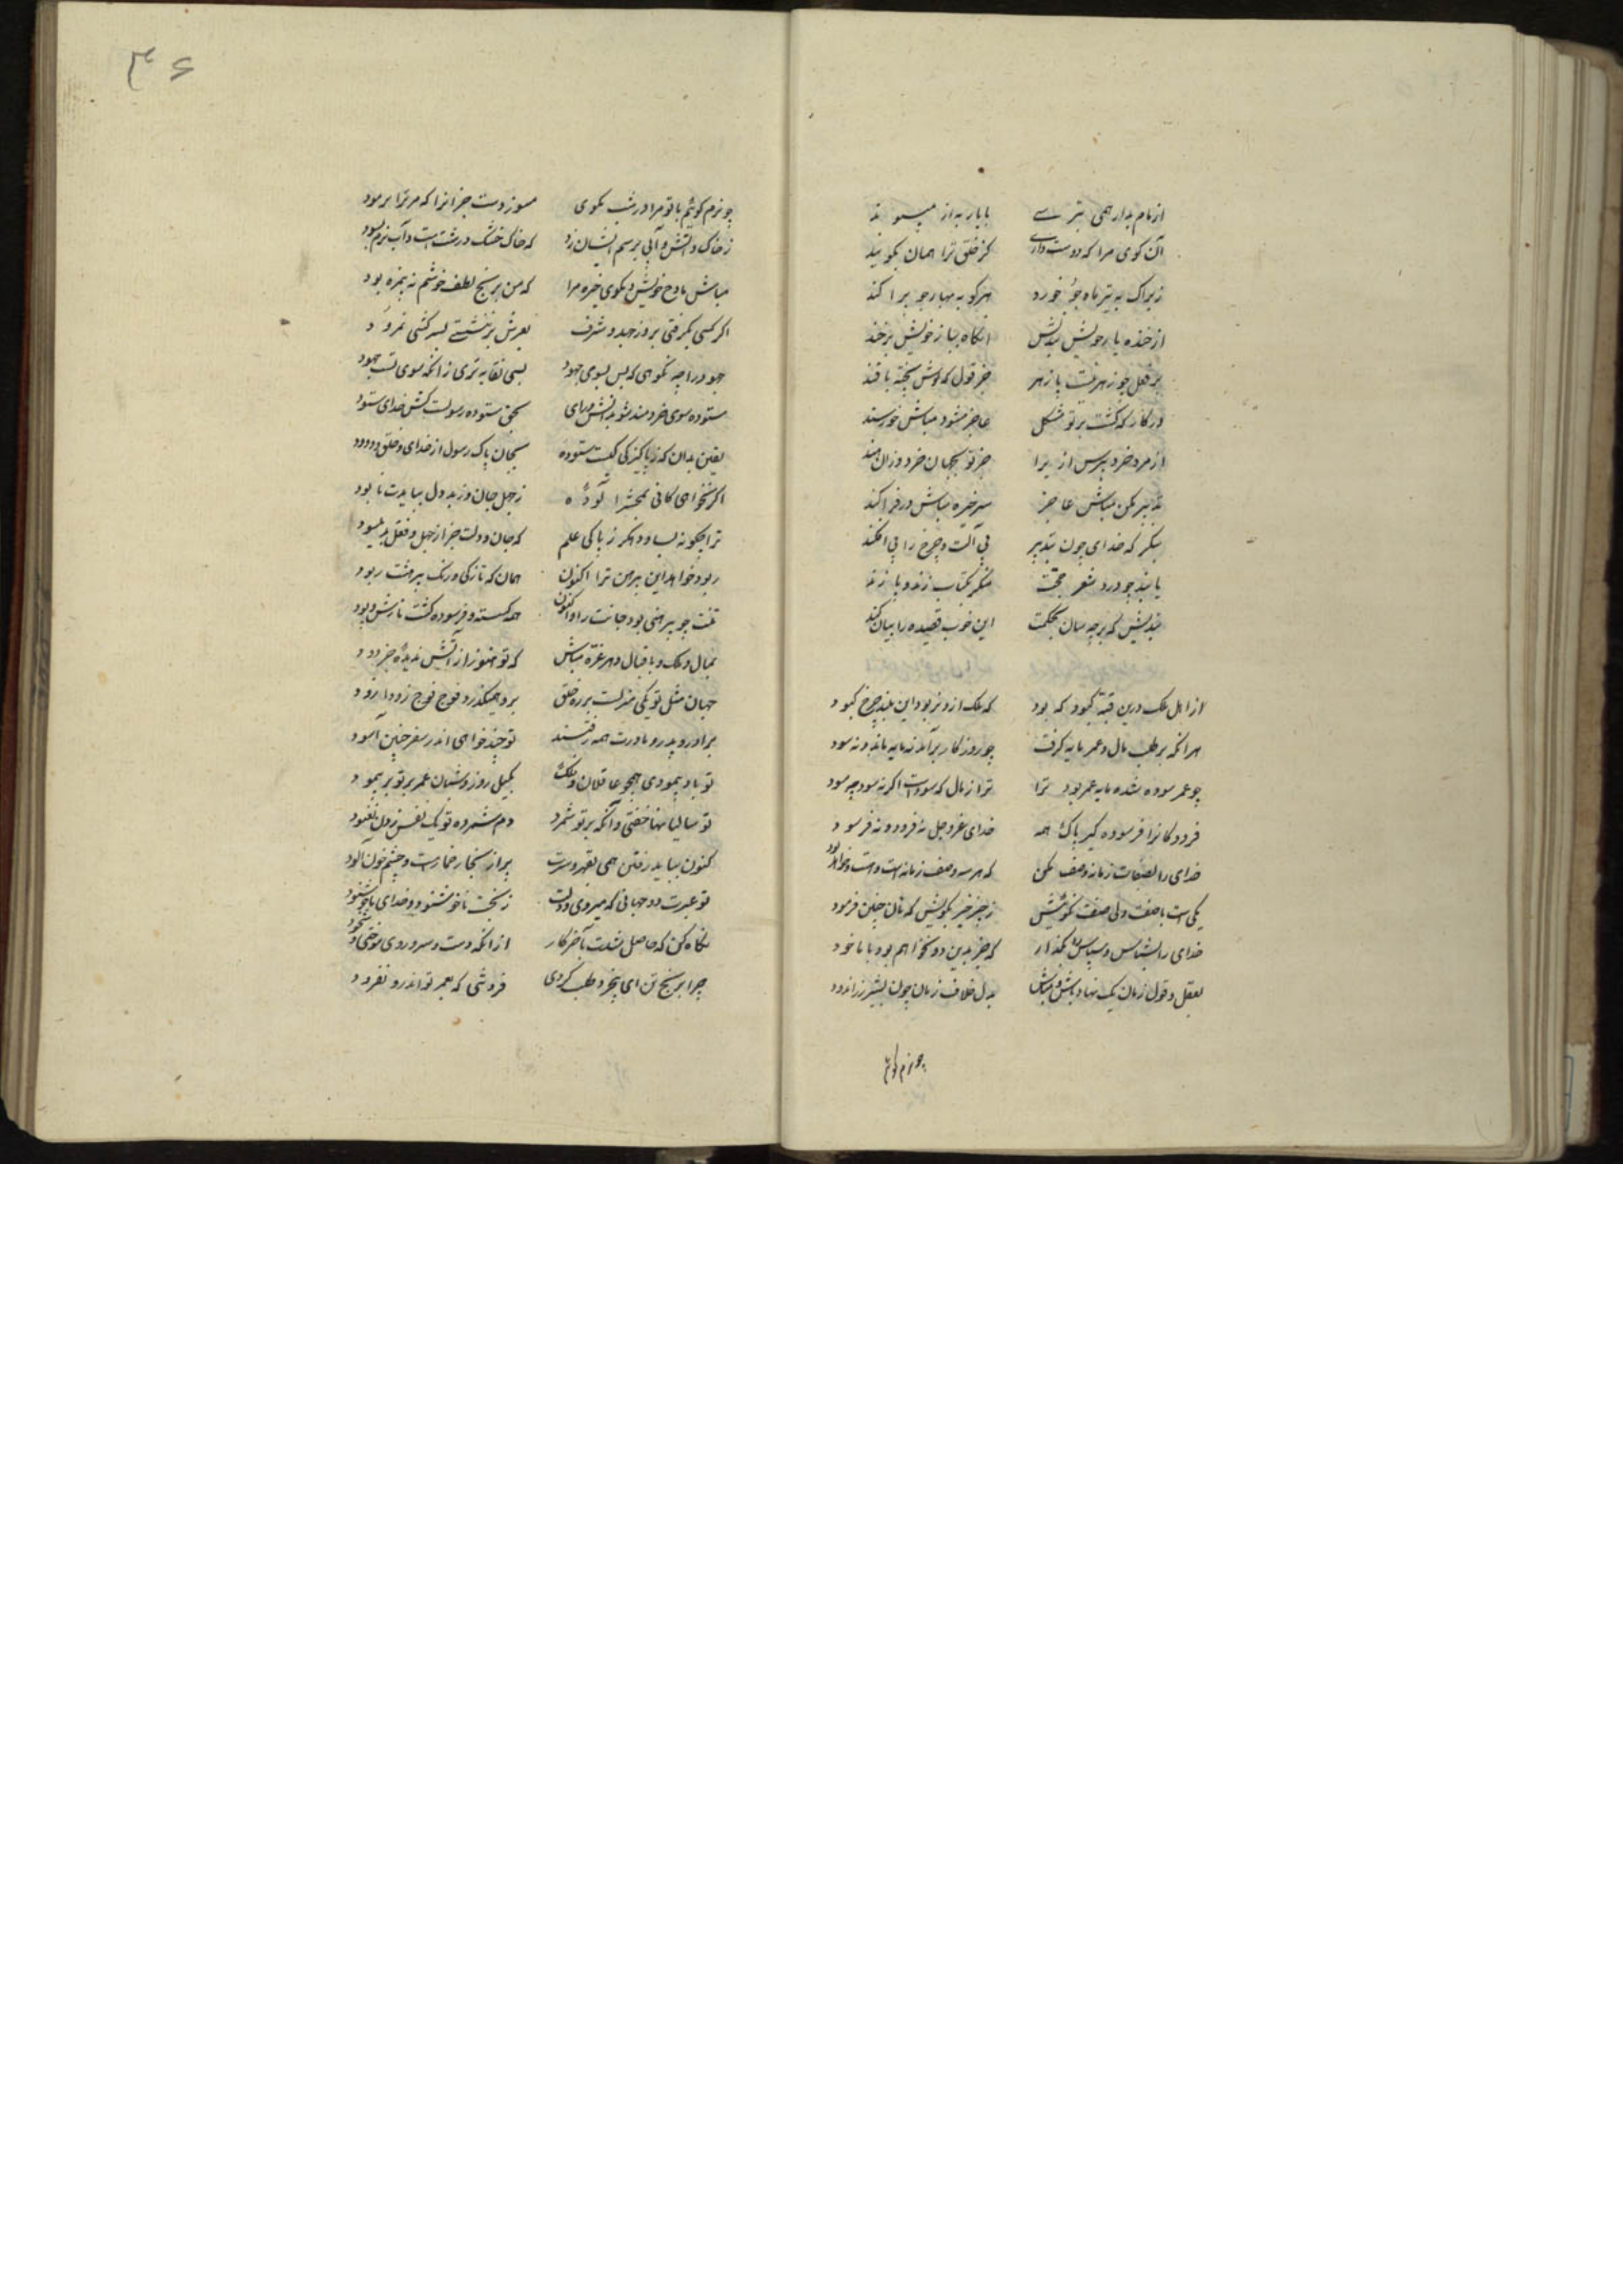 از نام بد ار همی بترسی با یار بد از بنه مپیوند
آن گوی مرا که دوست داری گر خلق ترا همان بگویند
زیراک به تیر ماه جو خورد هر کو به بهار جو پراکند
از خنده یار خویش بندیش آنگاه بیار خویش برخند
بر فعل چو زهر نیست پازهر جز قول که نوش پخته با قند
در کار که گشت بر تو مشکل عاجز مشو و مباش خورسند
از مرد خرد بپرس ازیرا جز تو بجهان خردوران هند
تدبیر بکن مباش عاجز سر خیره مباش در فراکند
بنگر که خدای چون بتدبیر بی آلت و چرخ را پی افکند
یا پند چو در و شعر حجت منگر بکتاب زند و پا زند
بندیش که بر چه سان بحکمت این خوب قصیده را بیان کند
از اهل ملک درین قبه کبود که بود که ملک ازو نربود این بلند چرخ کبود
هر آنکه بر طلب مال و عمر مایه گرفت چو روزگار بر آمد نه مایه ماند و نه سود
چو عمر سوده شد و مایه عمر بود ترا ترا ز مال که سود است اگر نه سود چه سود
فزودگانرا فرسوده گیر پاک همه خدای عز و جل نه فزود و نه فرسود
خدای را بصفات زمانه وصف مکن که هر سه وصف زمانه است و است و خواهد بود
یکی است با صفت و بی صفت نگوئیش ز چیز چیز مگویش که مان چنین فرمود
خدای را بشناس و سپاس او بگذار که جز بدین دو نخواهیم بود ما ماخوذ
بفعل و قول زبان یک نهاد باش و مباش بدل خلاف زبان چون پشیز زر اندود
چو نرم گویم
۴۶
چو نرم گویم با تو مرا درشت مگوی مسوز دست جز آنرا که مر ترا بر مود
ز خاک و آتش و آبی برسم ایشان رو که خاک خشک و درشت است و آب نرم بود
مباش مادح خویش و مگوی خیره مرا که من ترنج لطیف خوشم نه بیمزه بود
اگر کسی بگرفتی بزور جهد و شرف بعرش بر بنشستی بسر کشی نمرود
جهود را چه نکوهی که بس بسوی جهود بسی نفایه تری زانکه سوی تست جهود
ستوده سوی خردمند شو بدانش و رای بحق ستوده رسولست کش خدای ستود
یقین بدان که ز پاکیزگی است ستوده بجان پاک رسول از خدای و خلق درود
اگر نخواهی کائی بمحشر آلوده ز جهل جان و ز بد دل ببایدت پالود
ترا چگونه بساود هگرز پاکی علم که جان و دلت جز از جهل و فعل بد نبسود
ربود خواهد این پیرهن ترا اکنون همان که تازگی و رنگ پیرهنت ربود
تنت چو پیرهنی بود جانت را و اکنون همه گسسته و فرسوده گشت تارش و پود
بمال و ملک و باقبال دهر غره مباش که تو هنوز از آتش ندیده جز دود
جهان مثل تو یکی منزلست بر ره خلق برو همیگذرد فوج فوج زودا زود
برادر و پدر و مادرت همه رفتند تو چند خواهی اندر سفر چنین آسود
تو باد پیمودی همچو غافلان و فلک بکیل روز و شبان عمر بر تو بر پیمود
تو سالیانها خفتی و آنکه بر تو شمرد دم شمرده تو یک نفس زدن نغنود
کنون ببایدرفتن همی بقهر و سرت پر از بخار خمارست و چشم خون آلود
تو عبرت دو جهانی که میروی و دلت ز بخت ناخوشنود و خدای ناخوشنود
نگاه کن که چه حاصل شدت بآخر کار از آنکه دست و سر و روی سوختی و شخود
چرا برنج تن ای بیخرد طلب کردی فزونئی که بعمر تو اندرو نفزود